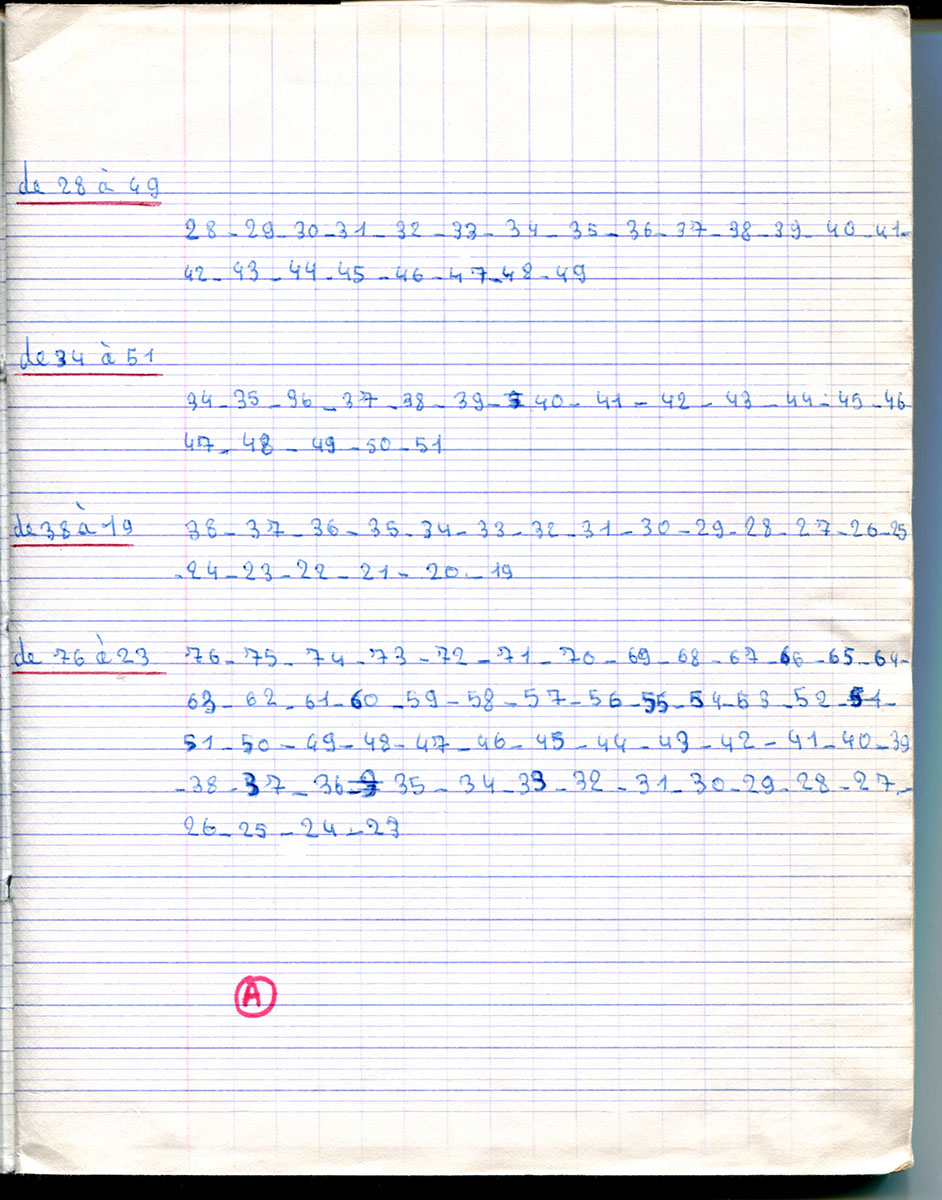 de 28 à 49
28 - 29 - 30 - 31 - 32 - 33 - 34 - 35 - 36 - 37 - 38 - 39 - 40 - 41 -
42 - 43 - 44 - 45 - 46 - 47 - 48 - 49
de 34 à 51
34 - 35 - 36 - 37 - 38 - 39 - 40 - 41 - 42 - 43 - 44 - 45 - 46
47 - 48 - 49 - 50 - 51
de 38 à 19 38 - 37 - 36 - 35 - 34 - 33 - 32 - 31 - 30 - 29 - 28 - 27 - 26 - 25
- 24 - 23 - 22 - 21 - 20 - 19
de 76 à 23 76 - 75 - 74 - 73 - 72 - 71 - 70 - 69 - 68 - 67 - 66 - 65 - 64 -
63 - 62 - 61 - 60 - 59 - 58 - 57 - 56 - 55 - 54 - 53 - 52 - 51 -
51 - 50 - 49 - 48 - 47 - 46 - 45 - 44 - 43 - 42 - 41 - 40 - 39
- 38 - 37 - 36 - 35 - 34 - 33 - 32 - 31 - 30 - 29 - 28 - 27 -
26 - 25 - 24 - 23
A